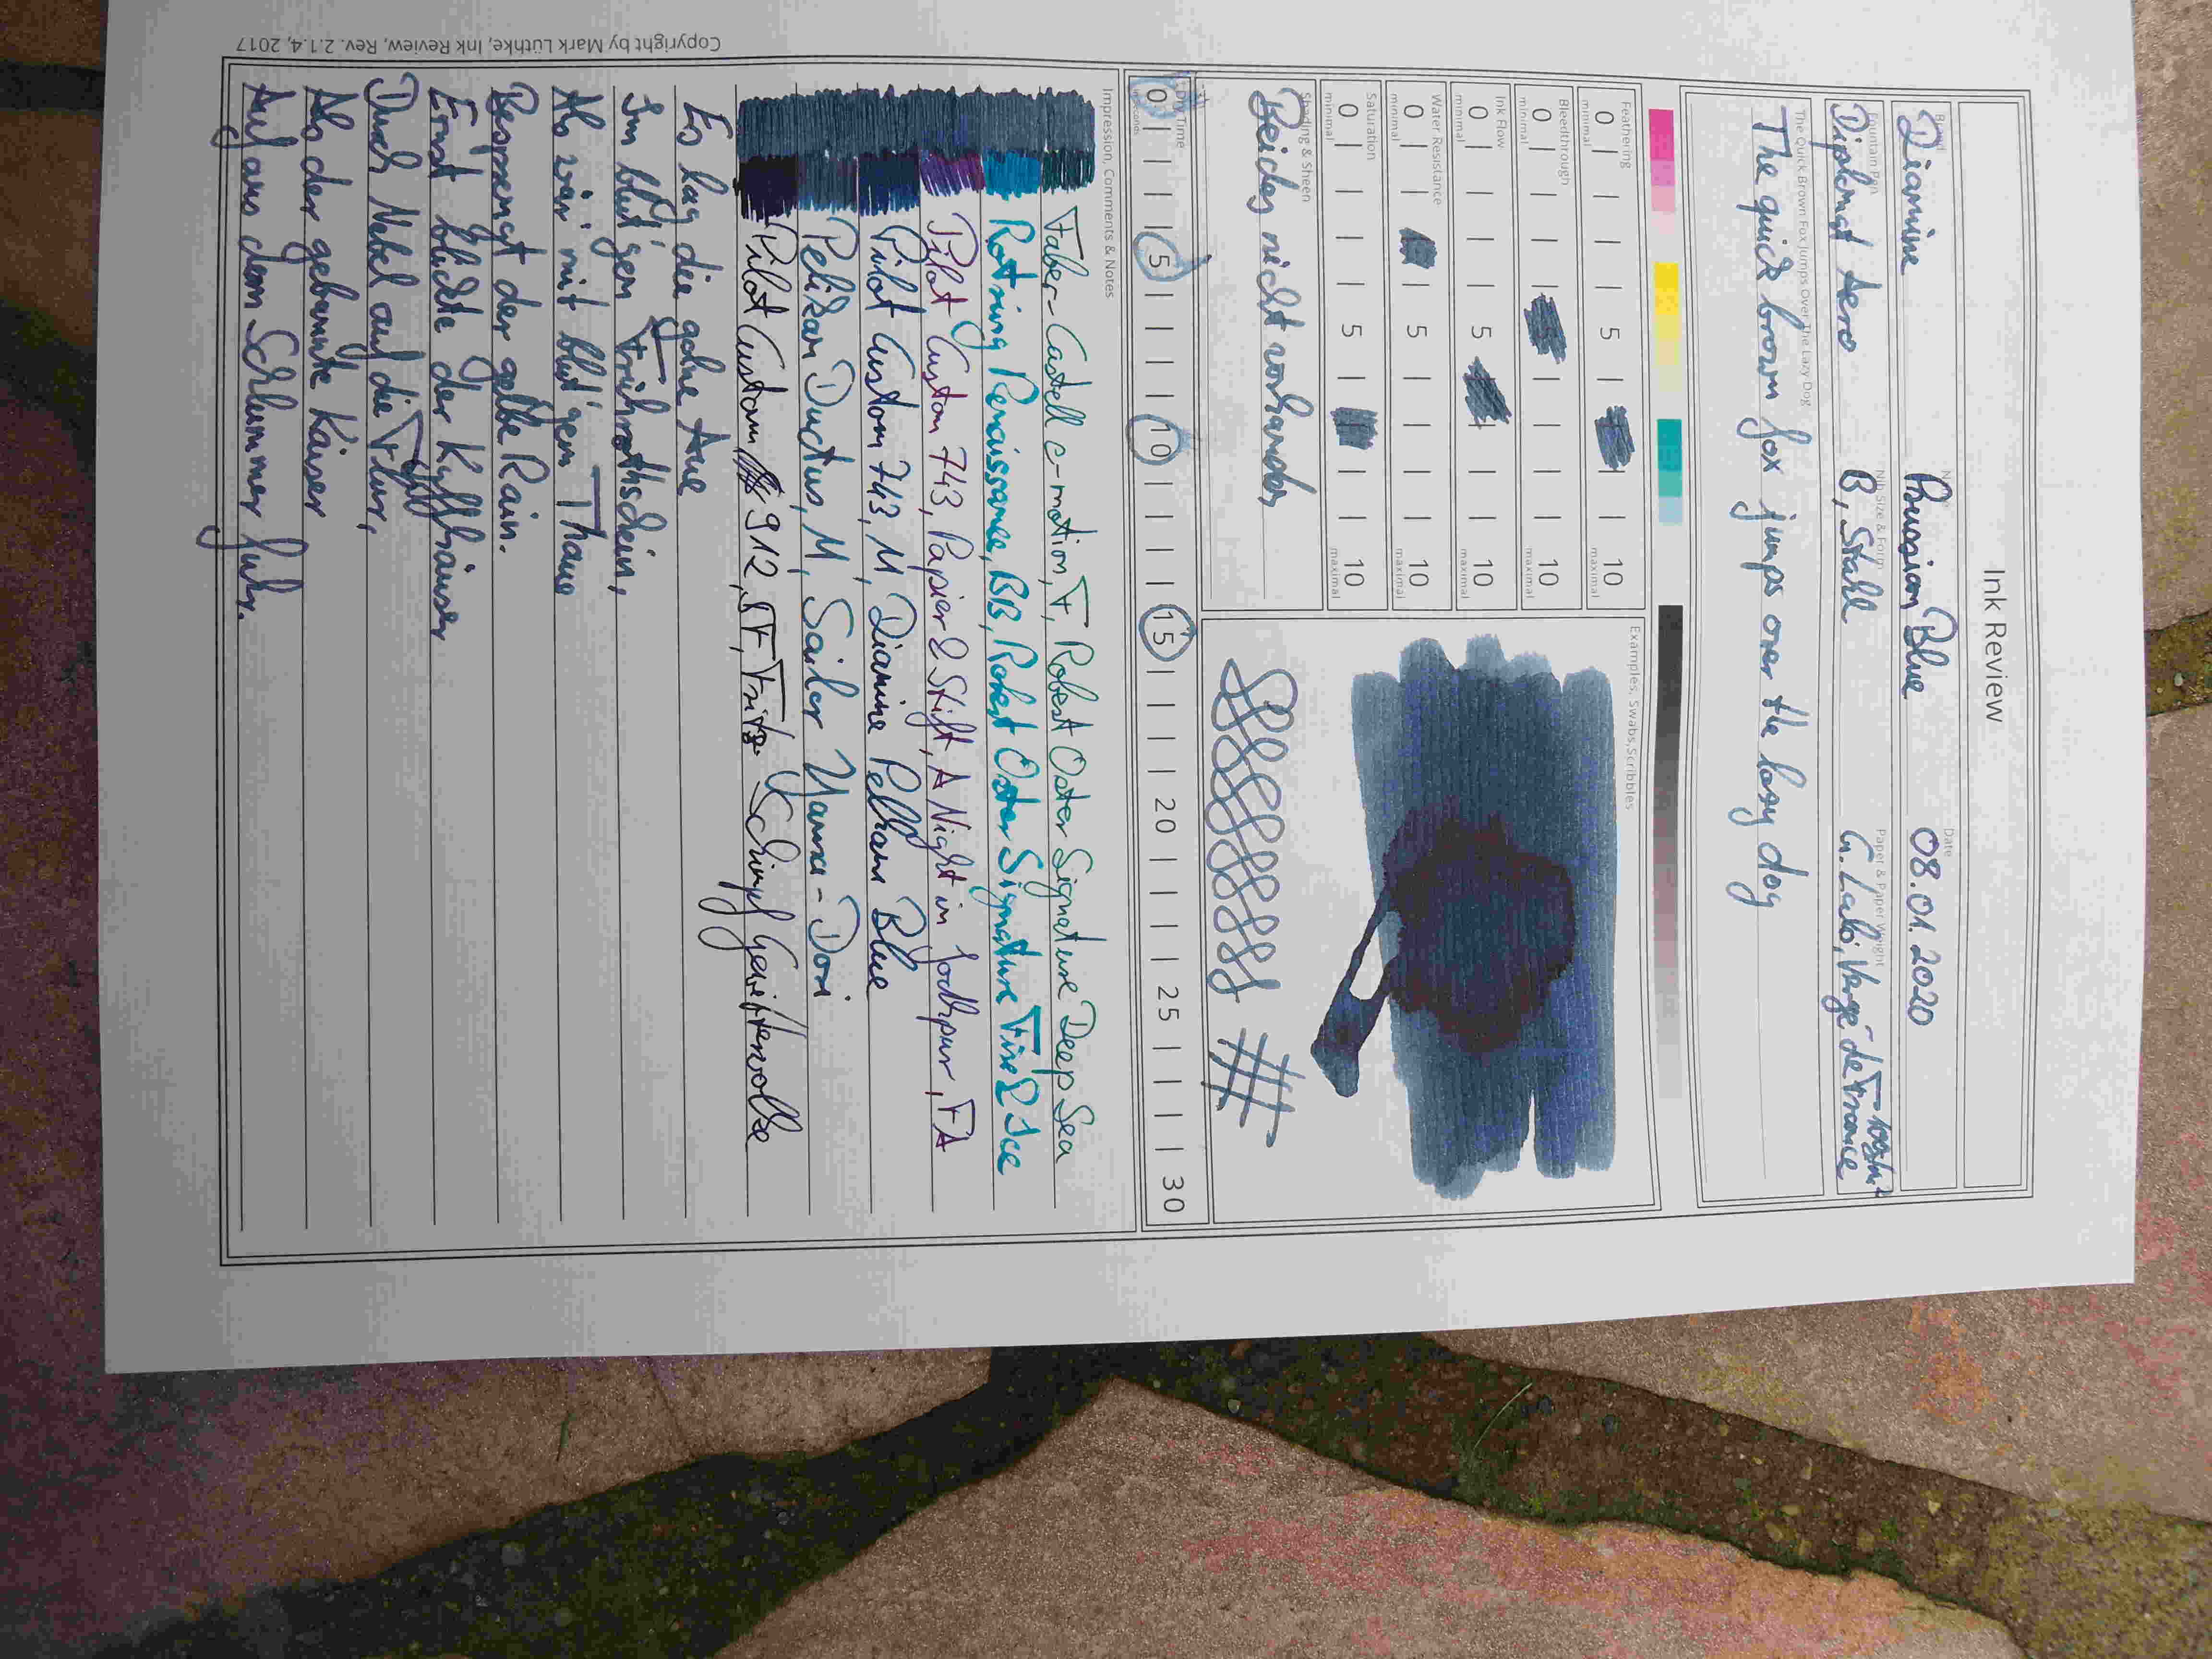 Ink Review
Brand
Diamine
Prussian Blue
Date
08.01.2020
Fountain Pen
Diplomat Aero
Nib Size & Form
B, Stahl
Paper & Paper Weight
G. Lalo, Vergé de France
The Quick Brown Fox Jumps Over The Lazy Dog
The quick brown fox jumps over the lazy dog
Feathering
0 | | | | 5 | | | 10
minimal maximal
Bleedthrough
0 | | | | | | | 10
minimal maximal
Ink Flow
0 | | | | 5 | | | 10
minimal maximal
Water Resistance
0 | | | 5 | | | | 10
minimal maximal
Saturation
0 | | | | 5 | | | 10
minimal maximal
Shading & Sheen
Beides nicht vorhanden
Examples, Swabs, Scribbles
Dry Time
seconds
0 | | | | 5 | | | | 10 | | | | 15 | | | | 20 | | | | 25 | | | | 30
Impression, Comments & Notes
Faber-Castell e-motion, F, Robert Oster Signature Deep Sea
Rotring Renaissance, BB, Robert Oster Signature Fire & Ice
Pilot Custom 743, Papier & Stift, A Night in Jodhpur, FA
Pilot Custom 743, M, Diamine Pelham Blue
Pelikan Ductus, M, Sailor Yama-Dori
Pilot Custom 912, Fritz Schimpf Gewitterwolke
Es lag die goldne Aue
Im blut'gen Frührothschein,
Als wär mit blut'gem Thaue
Besprengt der gelbe Rain.
Ernst blickte der Kyffhäuser
Durch Nebel auf die Flur,
Als der gebannte Kaiser
Auf aus dem Schlummer fuhr.
Copyright by Mark Lüthke, Ink Review, Rev. 2.1.4, 2017